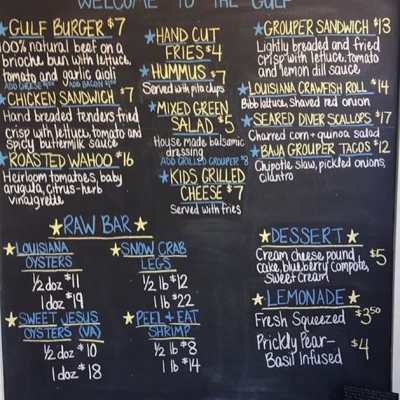 WELCOME TO THE GULF
GULF BURGER $7
100% natural beef on a
brioche bun with lettuce,
tomato and garlic aioli
CHICKEN SANDWICH $7
Hand breaded tenders fried
crisp with lettuce, tomato and
spicy buttermilk sauce
ROASTED WAHOO $16
Heirloom tomatoes, baby
arugula, citrus-herb
vinaigrette
HAND CUT
FRIES $4
HUMMUS $7
Served with pita chips
MIXED GREEN
SALAD $5
House made balsamic
dressing
ADD GRILLED GROUPER $8
KIDS GRILLED
CHEESE $7
Served with fries
GROUPER SANDWICH $13
Lightly breaded and fried
crisp with lettuce, tomato
and lemon dill sauce
LOUISIANA CRAWFISH ROLL $14
Bibb lettuce, shaved red onion
SEARED DIVER SCALLOPS $17
Charred corn + quinoa salad
BAJA GROUPER TACOS $12
Chipotle slaw, pickled onions,
cilantro
RAW BAR
LOUISIANA
OYSTERS
1/2 doz $11
1 doz $19
SWEET JESUS
OYSTERS (VA)
1/2 doz $10
1 doz $18
SNOW CRAB
LEGS
1/2 lb $12
1 lb $22
PEEL + EAT
SHRIMP
1/2 lb $8
1 lb $14
DESSERT
Cream cheese pound
cake, blueberry compote,
sweet cream $5
LEMONADE
Fresh Squeezed $3.50
Prickly Pear-
Basil Infused $4